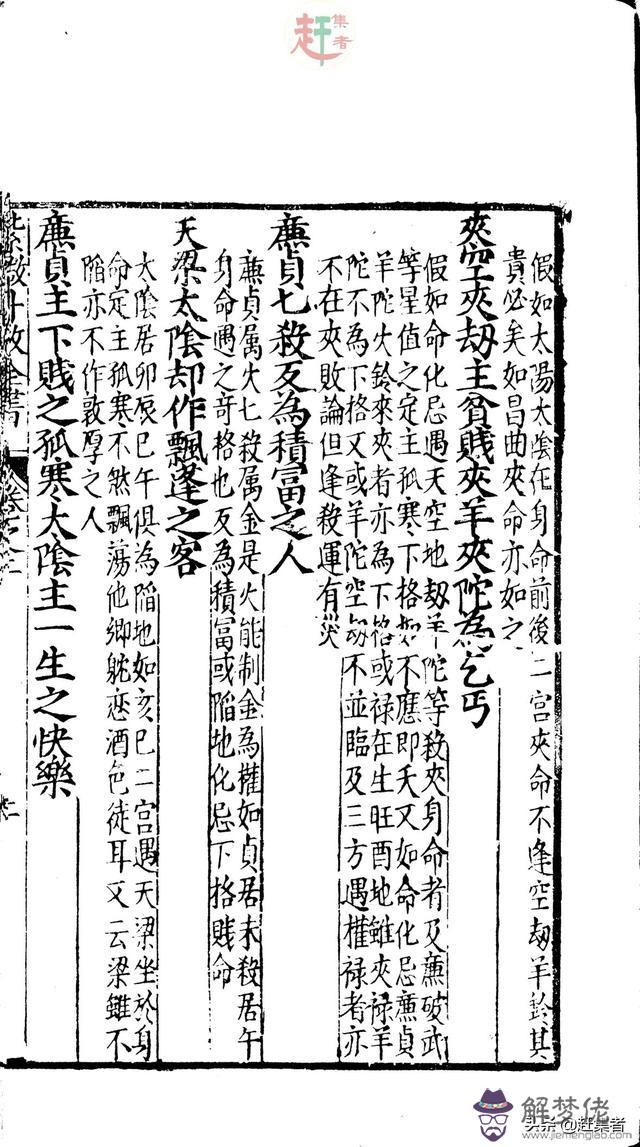 赶集者
假如太陽太陰在身命前後二宮夾命不逢空刼羊鈴其
貴必矣如昌曲夾命亦如之
夾空夾刼主貧賤夾羊夾陀為乞丐
假如命化忌遇天空地刼羊陀等殺夾身命者及廉破武
等星值之定主孤寒下格如不應即夭又如命化忌廉貞
羊陀火鈴來夾者亦為下格或禄在生旺酉地雖夾禄羊
陀不為下格又或羊陀空刼不並臨及三方遇權禄者亦
不在夾敗論但逢殺運有災
廉貞七殺反為積富之人
廉貞属火七殺属金是火能制金為權如貞居未殺居午
身命遇之奇格也反為積富或陷地化忌下格賤命
天梁太陰却作飄蓬之客
太陰居卯辰巳午俱為陷地如亥巳二宮遇天梁坐於身
命定主孤寒不然飄蕩他鄉躭戀酒色徒耳又云梁雖不
陷亦不作敦厚之人
廉貞主下賤之孤寒太陰主一生之快樂
全書
解梦佬
www.jiemenglao.com
头条@赶集者